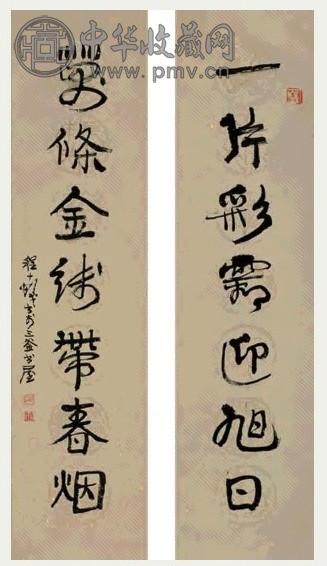 中华收藏网
www.pmv.cn
一片彩霞迎旭日
萬條金线帶春烟
程十髮書於三釜書屋